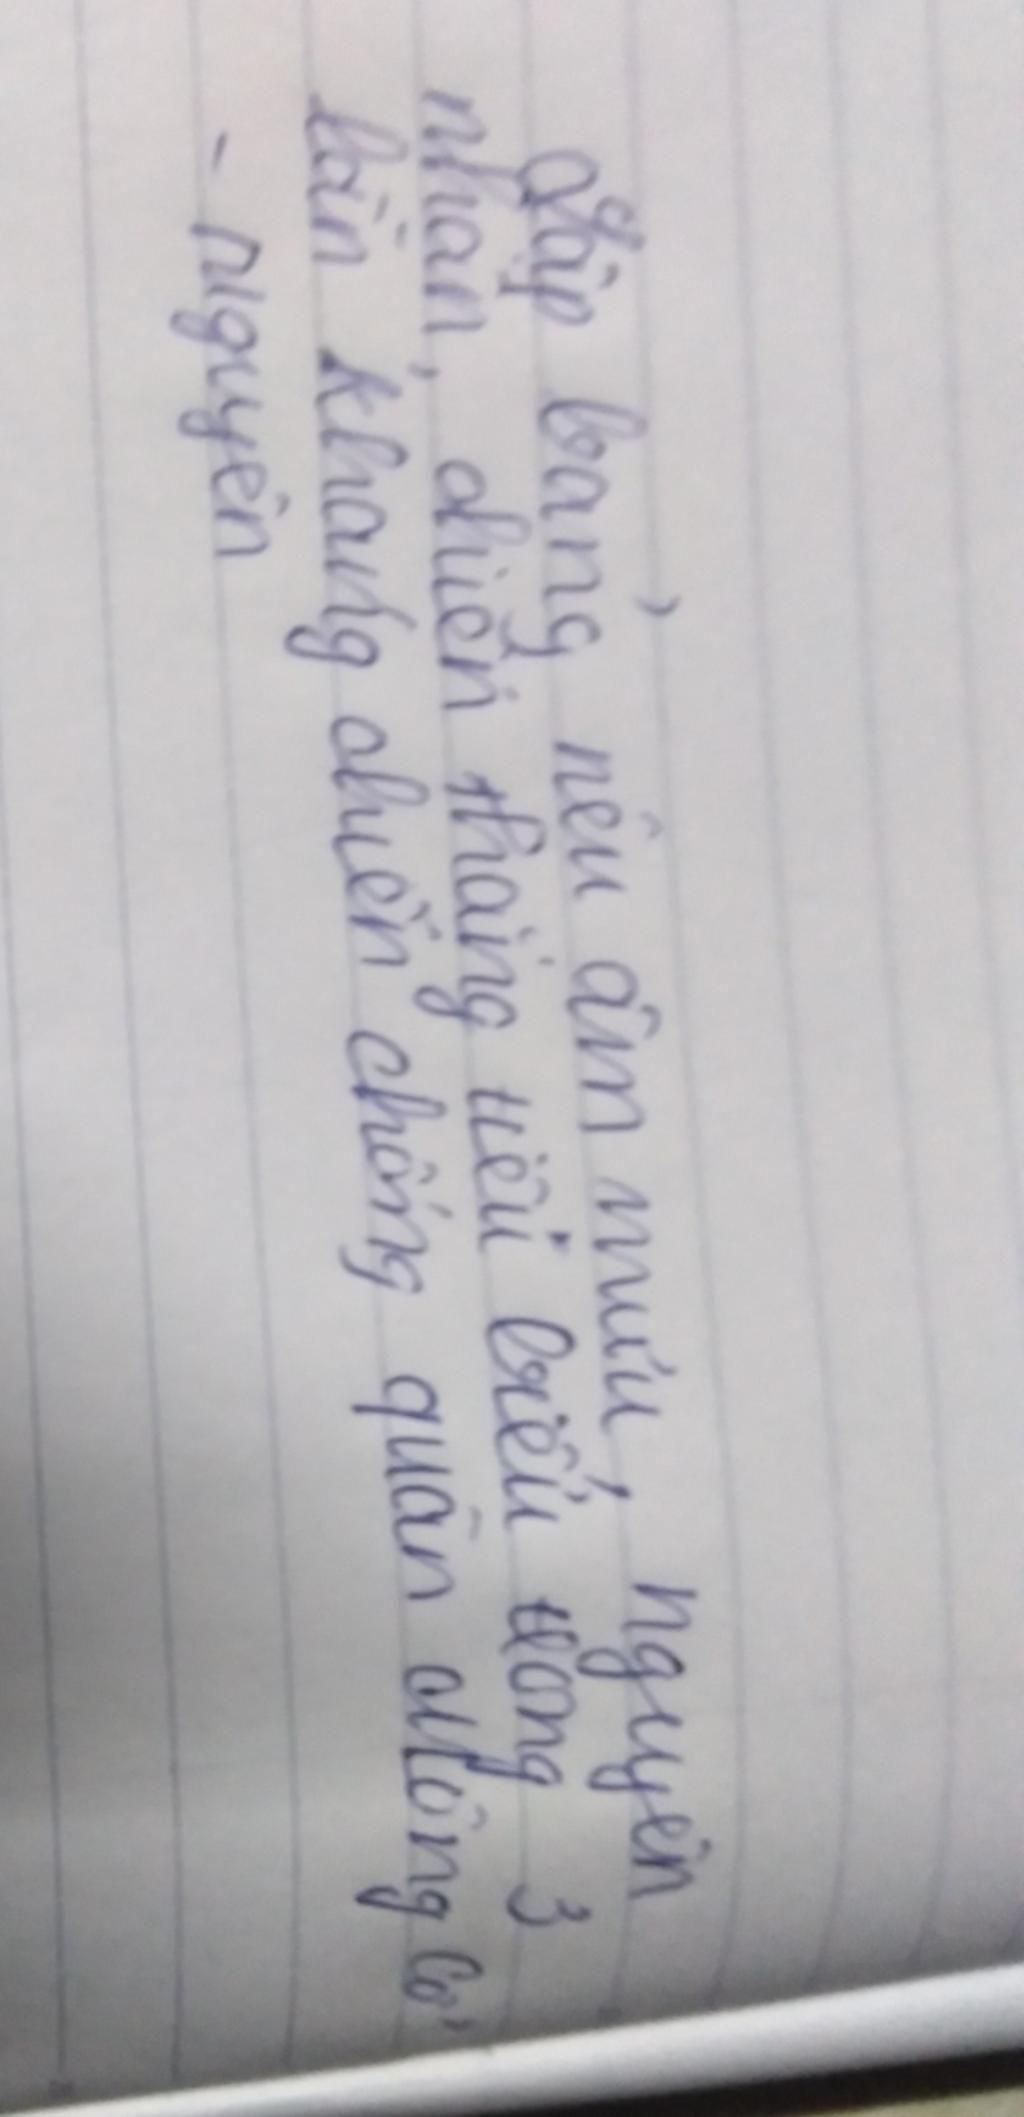 Lập bảng nêu âm mưu, nguyên
nhân, chiến thắng tiêu biểu trong 3
lần kháng chiến chống quân Mông Cổ
- Nguyên